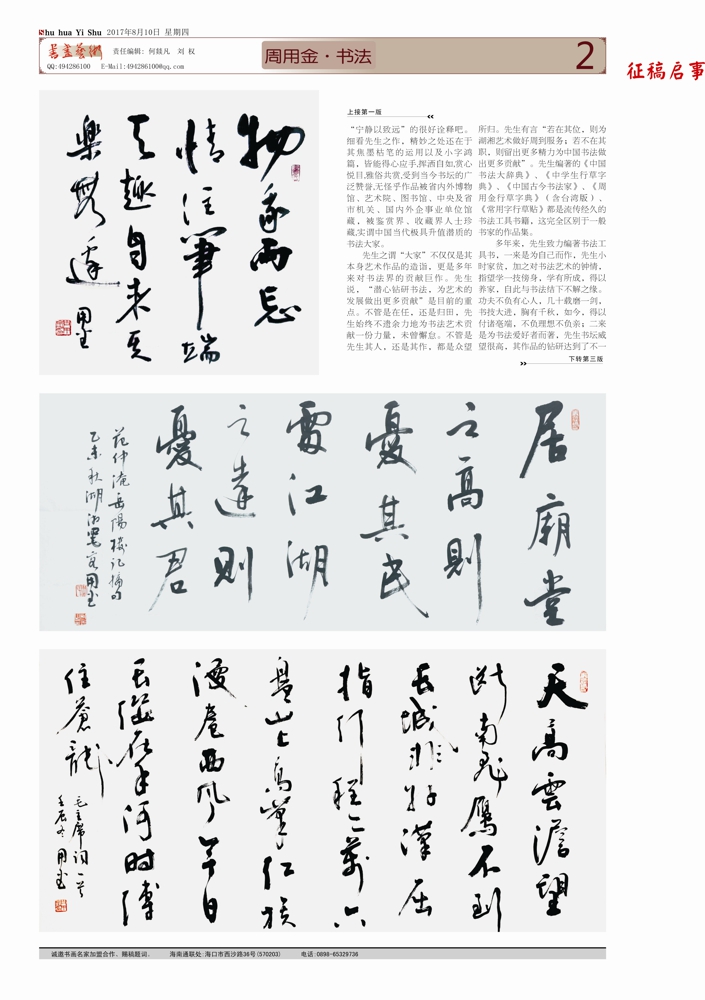 Shu hua Yi Shu 2017年8月10日 星期四
書畫藝術
责任编辑: 何燚凡 刘 权
QQ:494286100 E-Mail:494286100@qq.com
周用金·书法
2
征稿启事
物我两忘
情注筆端
天趣自来其
樂無邊
用金
上接第一版
“宁静以致远”的很好诠释吧。
细看先生之作，精妙之处还在于
其焦墨枯笔的运用以及小字鸿
篇，皆能得心应手,挥洒自如,赏心
悦目,雅俗共赏,受到当今书坛的广
泛赞誉,无怪乎作品被省内外博物
馆、艺术院、图书馆、中央及省
市机关、国内外企事业单位馆
藏，被鉴赏界、收藏界人士珍
藏,实谓中国当代极具升值潜质的
书法大家。
先生之谓“大家”不仅仅是其
本身艺术作品的造诣，更是多年
来对书法界的贡献巨作。先生
说，“潜心钻研书法，为艺术的
发展做出更多贡献”是目前的重
点。不管是在任，还是归田，先
生始终不遗余力地为书法艺术贡
献一份力量，未曾懈怠。不管是
先生其人，还是其作，都是众望
所归。先生有言“若在其位，则为
湖湘艺术做好周到服务；若不在其
职，则留出更多精力为中国书法做
出更多贡献”。先生编著的《中国
书法大辞典》、《中学生行草字
典》、《中国古今书法家》、《周
用金行草字典》（含台湾版）、
《常用字行草帖》都是流传经久的
书法工具书籍，这完全区别于一般
书家的作品集。
多年来，先生致力编著书法工
具书，一来是为自己而作，先生小
时家贫，加之对书法艺术的钟情，
指望学一技傍身，学有所成，得以
养家，自此与书法结下不解之缘。
功夫不负有心人，几十载磨一剑，
书技大进，胸有千秋，如今，得以
付诸毫端，不负理想不负亲；二来
是为书法爱好者而著，先生书坛威
望很高，其作品的钻研达到了不一
下转第三版
居廟堂
之高則
憂其民
處江湖
之遠則
憂其君
范仲淹岳陽樓记摘句
乙未秋湖湘墨客用金
天高雲澹望
断南飛鴈不到
長城非好漢屈
指行程二萬六
盤山上高峰红旗
漫卷西风今日
長纓在手何时缚
住蒼龍
毛主席词一首
壬辰冬用金
诚邀书画名家加盟合作，赐稿题词。 海南通联处:海口市西沙路36号(570203) 电话:0898-65329736